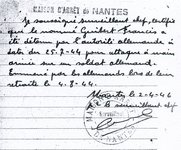 MAISON D'ARRÊT de NANTES
Je soussigné surveillant chef, certifie
que le nommé Guibert Francis a
été détenu par l'autorité allemande à
dater du 25.7.44 pour attaque à main
armée sur un soldat allemand.
Emmené par les allemands lors de leur
retraite le 4.8.44.
Nantes le 2-4-46
Le surveillant chef
NANTES